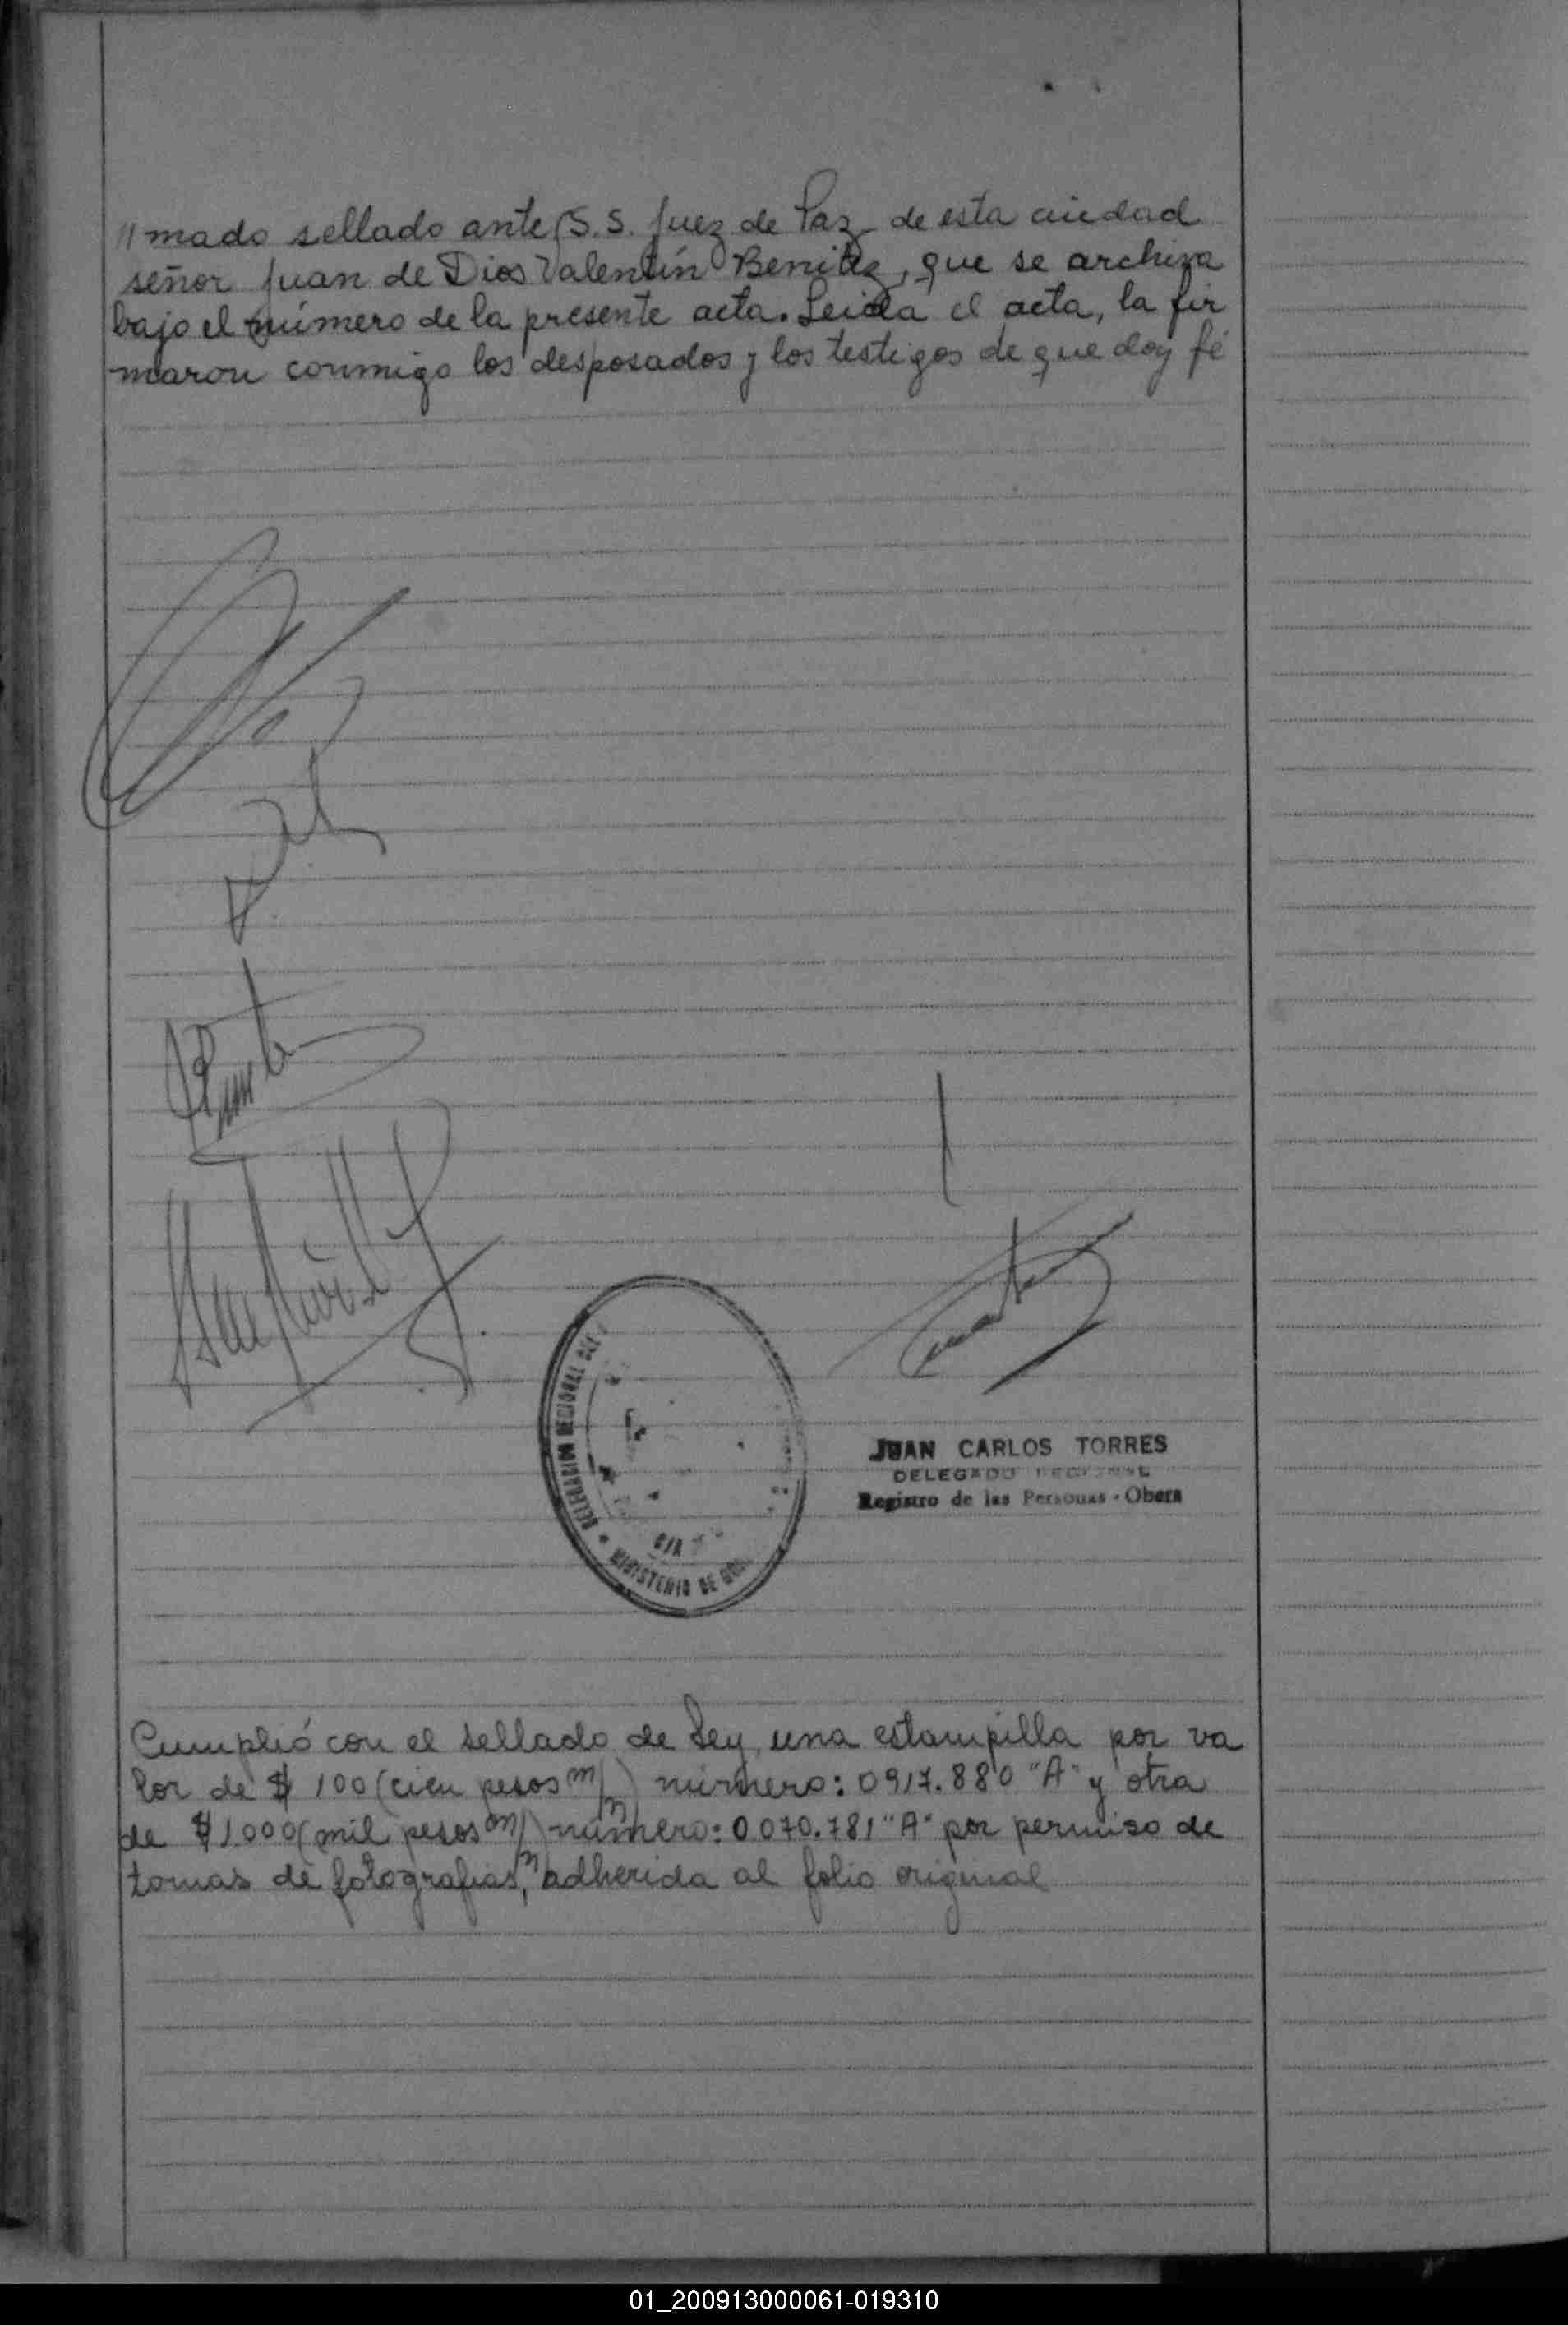 // mado sellado ante S.S. Juez de Paz de esta ciudad
señor Juan de Dios Valentín Benitez, que se archiva
bajo el número de la presente acta. Leida el acta, la fir
maron conmigo los desposados y los testigos de que doy fé
DELEGACION REGIONAL DEL
MINISTERIO DE
JUAN CARLOS TORRES
DELEGADO REGIONAL
Registro de las Personas - Obera
Cumplió con el sellado de Ley, una estampilla por va
lor de $ 100 (cien pesos m/n) número: 0917.880 "A" y otra
de $ 1.000 (mil pesos m/n) número: 0070.781 "A" por permiso de
tomas de fotografias, adherida al folio original
01_200913000061-019310